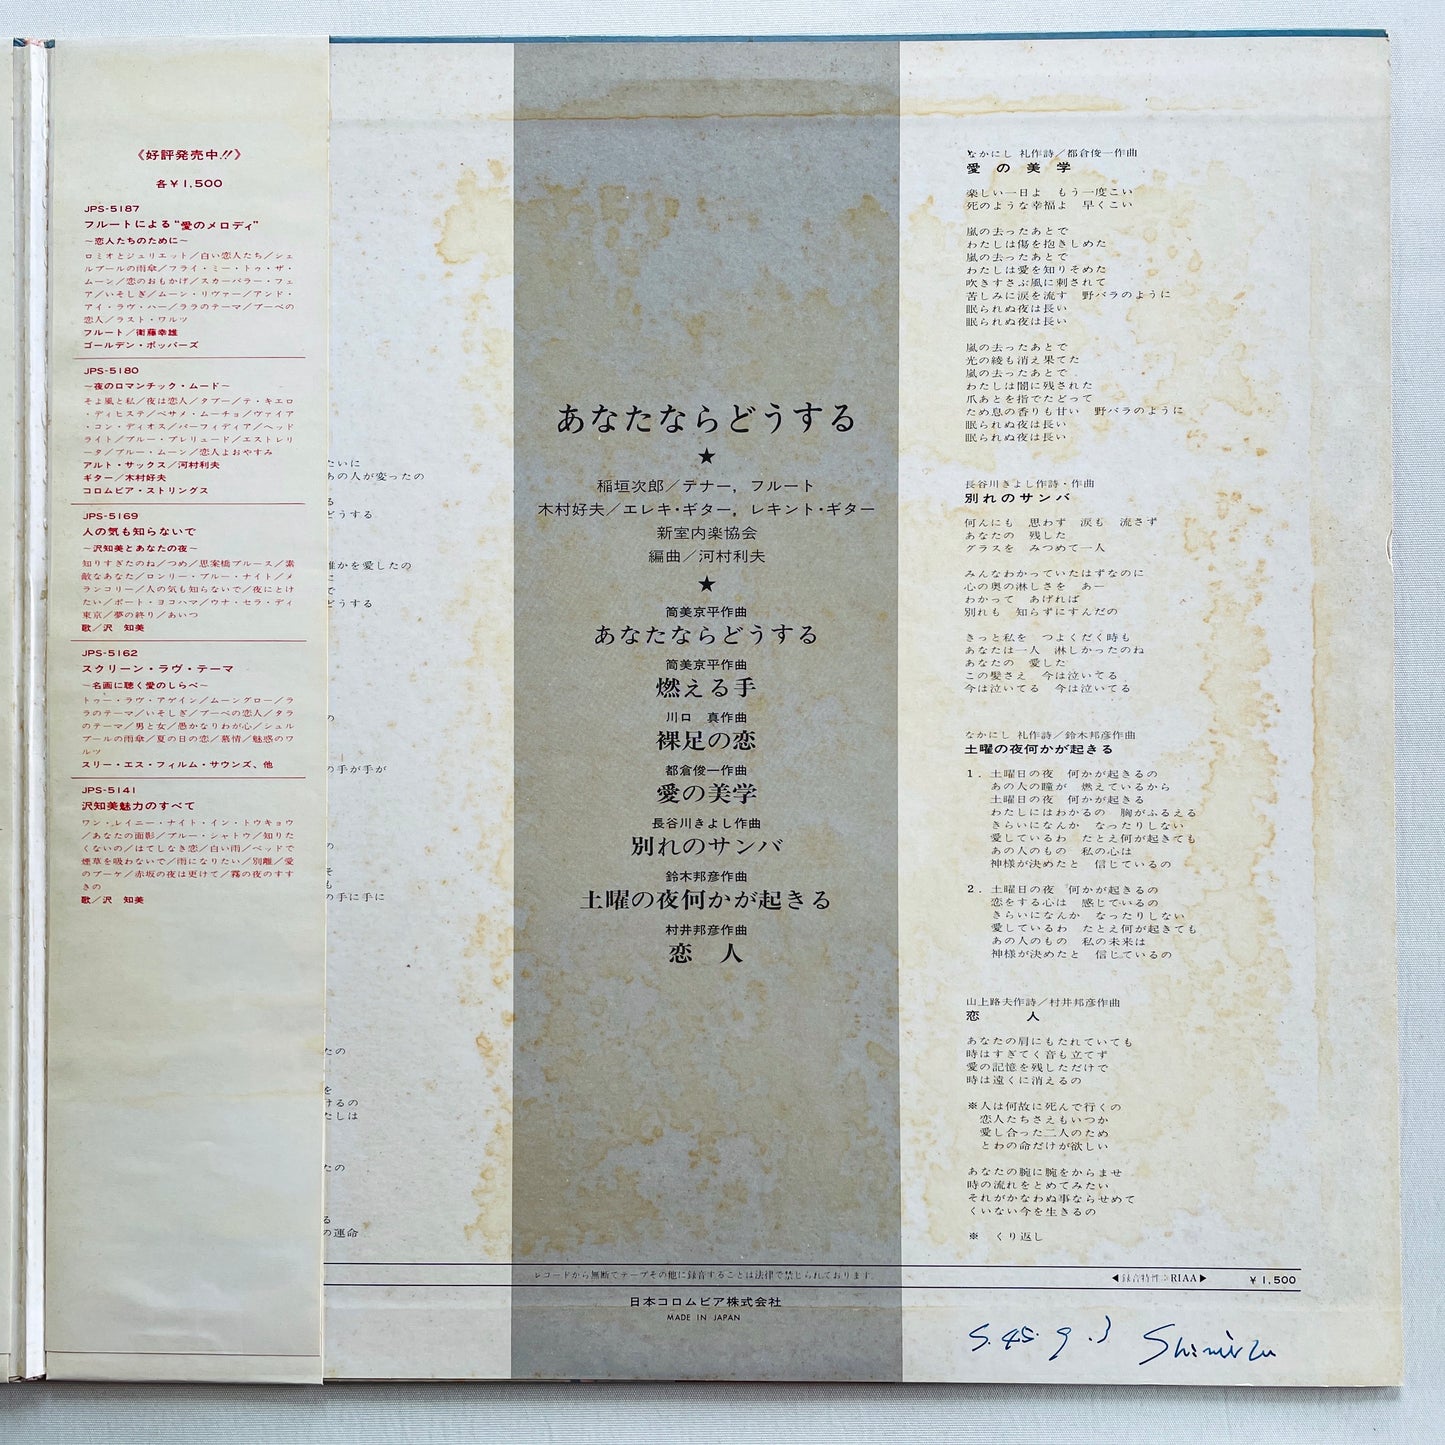 《好評発売中!!》
各￥1,500
JPS-5187
フルートによる“愛のメロディ”
～恋人たちのために～
ロミオとジュリエット／白い恋人たち／シェ
ルブールの雨傘／フライ・ミー・トゥ・ザ・
ムーン／恋のおもかげ／スカーバラー・フェ
ア／いそしぎ／ムーン・リヴァー／アンド・
アイ・ラヴ・ハー／ララのテーマ／ブーベの
恋人／ラスト・ワルツ
フルート／衛藤幸雄
ゴールデン・ポッパーズ
JPS-5180
～夜のロマンチック・ムード～
そよ風と私／夜は恋人／タブー／テ・キエロ
・ディヒステ／ベサメ・ムーチョ／ヴァイア
・コン・ディオス／パーフィディア／ヘッド
ライト／ブルー・プレリュード／エストレリ
ータ／ブルー・ムーン／恋人よおやすみ
アルト・サックス／河村利夫
ギター／木村好夫
コロムビア・ストリングス
JPS-5169
人の気も知らないで
～沢知美とあなたの夜～
知りすぎたのね／つめ／思案橋ブルース／素
敵なあなた／ロンリー・ブルー・ナイト／メ
ランコリー／人の気も知らないで／夜にとけ
たい／ポート・ヨコハマ／ウナ・セラ・ディ
東京／夢の終り／あいつ
歌／沢　知美
JPS-5162
スクリーン・ラヴ・テーマ
～名画に聴く愛のしらべ～
トゥー・ラヴ・アゲイン／ムーングロー／ラ
ラのテーマ／いそしぎ／ブーベの恋人／タラ
のテーマ／男と女／愚かなりわが心／シェル
ブールの雨傘／夏の日の恋／慕情／魅惑のワ
ルツ
スリー・エス・フィルム・サウンズ、他
JPS-5141
沢知美魅力のすべて
ワン・レイニー・ナイト・イン・トウキョウ
／あなたの面影／ブルー・シャトウ／知りた
くないの／はてしなき恋／白い雨／ベッドで
煙草を吸わないで／雨になりたい／別離／愛
のブーケ／赤坂の夜は更けて／霧の夜のすす
きの
歌／沢　知美
たいに
あの人が変ったの
る
どうする
誰かを愛したの
に
で
どうする
の
の手が手が
の
そ
も
の手に手に
たの
を
けるの
たしは
たの
る
の運命
あなたならどうする
★
稲垣次郎／テナー，フルート
木村好夫／エレキ・ギター，レキント・ギター
新室内楽協会
編曲／河村利夫
★
筒美京平作曲
あなたならどうする
筒美京平作曲
燃える手
川口　真作曲
裸足の恋
都倉俊一作曲
愛の美学
長谷川きよし作曲
別れのサンバ
鈴木邦彦作曲
土曜の夜何かが起きる
村井邦彦作曲
恋　人
なかにし 礼作詩／都倉俊一作曲
愛の美学
楽しい一日よ　もう一度こい
死のような幸福よ　早くこい
嵐の去ったあとで
わたしは傷を抱きしめた
嵐の去ったあとで
わたしは愛を知りそめた
吹きすさぶ風に刺されて
苦しみに涙を流す　野バラのように
眠られぬ夜は長い
眠られぬ夜は長い
嵐の去ったあとで
光の綾も消え果てた
嵐の去ったあとで
わたしは闇に残された
爪あとを指でたどって
ため息の香りも甘い　野バラのように
眠られぬ夜は長い
眠られぬ夜は長い
長谷川きよし作詩・作曲
別れのサンバ
何んにも　思わず　涙も　流さず
あなたの　残した
グラスを　みつめて一人
みんなわかっていたはずなのに
心の奥の淋しさを　あー
わかって　あげれば
別れも　知らずにすんだの
きっと私を　つよくだく時も
あなたは一人　淋しかったのね
あなたの　愛した
この髪さえ　今は泣いてる
今は泣いてる　今は泣いてる
なかにし 礼作詩／鈴木邦彦作曲
土曜の夜何かが起きる
1．土曜日の夜　何かが起きるの
あの人の瞳が　燃えているから
土曜日の夜　何かが起きる
わたしにはわかるの　胸がふるえる
きらいになんか　なったりしない
愛しているわ　たとえ何が起きても
あの人のもの　私の心は
神様が決めたと　信じているの
2．土曜日の夜　何かが起きるの
恋をする心は　感じているの
きらいになんか　なったりしない
愛しているわ　たとえ何が起きても
あの人のもの　私の未来は
神様が決めたと　信じているの
山上路夫作詩／村井邦彦作曲
恋　人
あなたの肩にもたれていても
時はすぎてく音も立てず
愛の記憶を残しただけで
時は遠くに消えるの
※人は何故に死んで行くの
恋人たちさえもいつか
愛し合った二人のため
とわの命だけが欲しい
あなたの腕に腕をからませ
時の流れをとめてみたい
それがかなわぬ事ならせめて
くいない今を生きるの
※　くり返し
レコードから無断でテープその他に録音することは法律で禁じられております。
◀録音特性：RIAA▶　￥1,500
日本コロムビア株式会社
MADE IN JAPAN
S.45.9.3 Shimizu